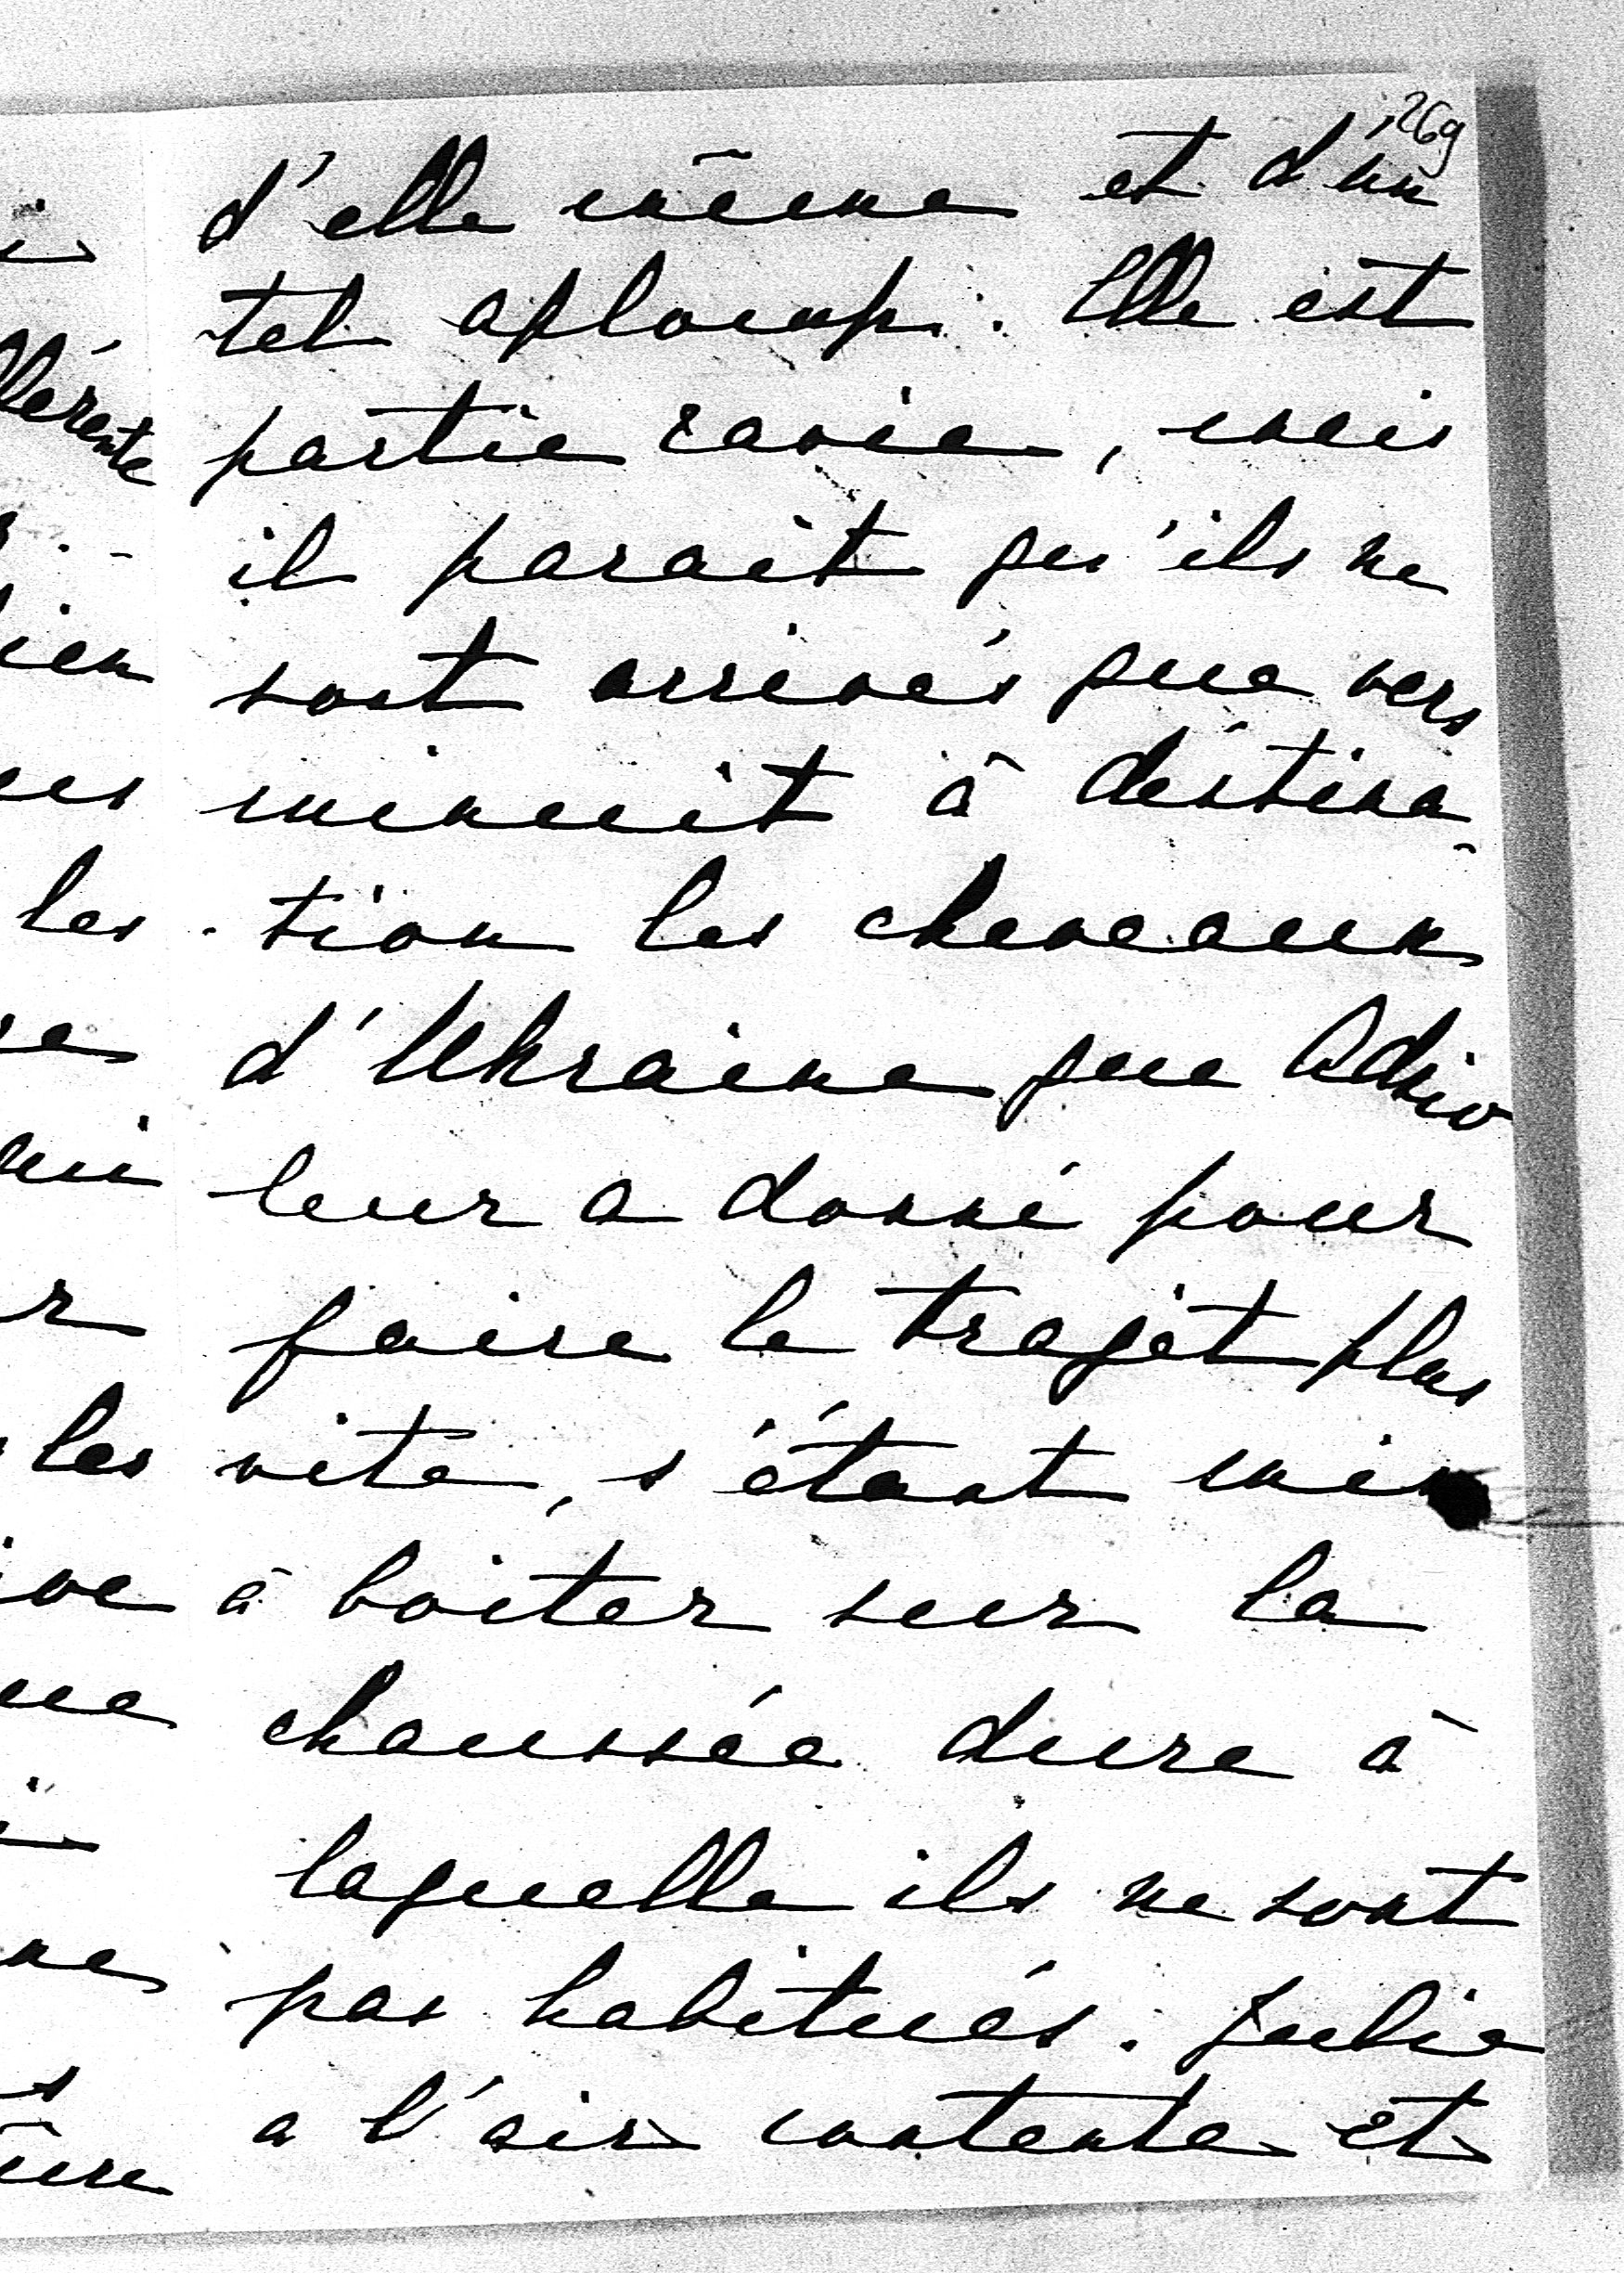 269
d'elle même et d'un
tel aplomp. Elle est
partie ravie, mais
il parait qu'ils ne
sont arrivés que vers
minuit à déstina-
tion les cheveaux
d'Ukraine que
leur a donné pour
faire le trajet plus
vite, s'étant mis
à boiter sur la
chaussée dure à
laquelle ils ne sont
pas habitués. Julie
a l'air contente et